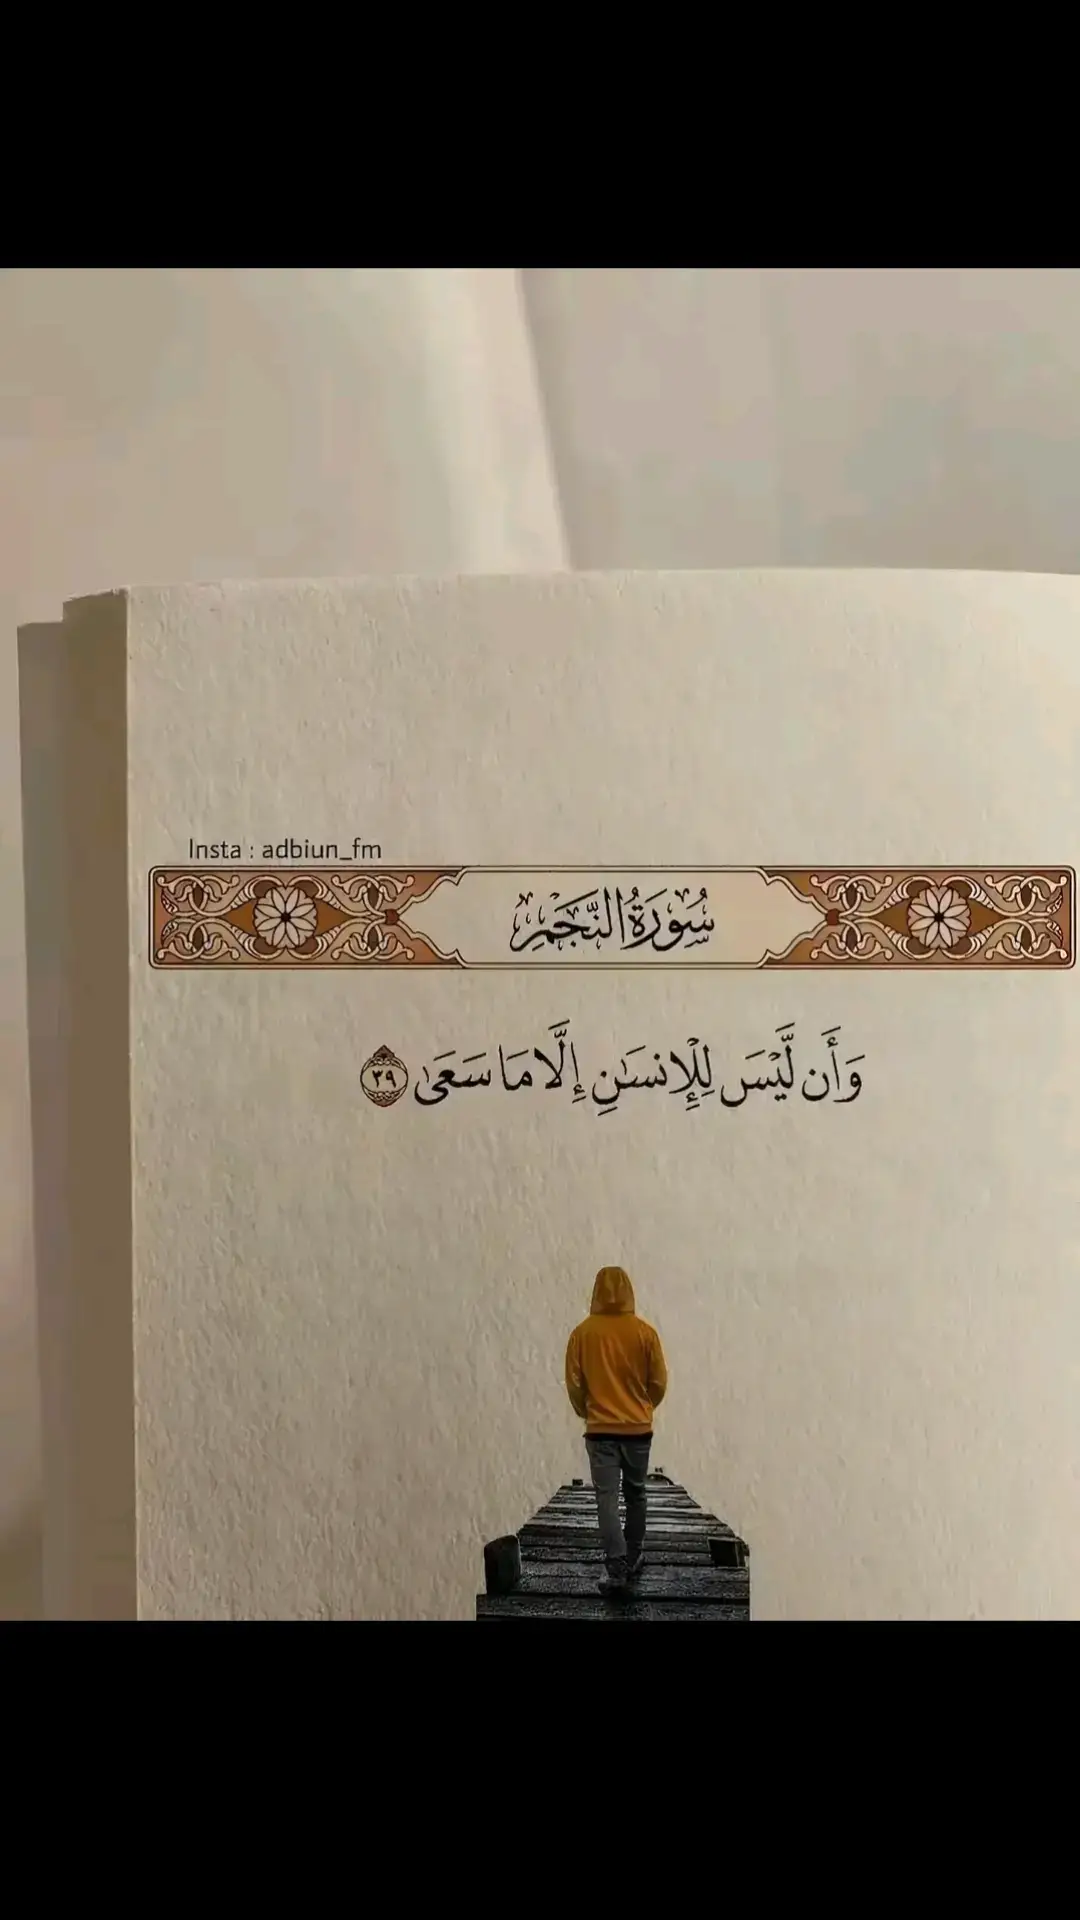 Insta : adbiun_fm
سُورَةُ النَّجْمِ
وَأَن لَّيْسَ لِلْإِنسَٰنِ إِلَّا مَا سَعَىٰ ٣٩